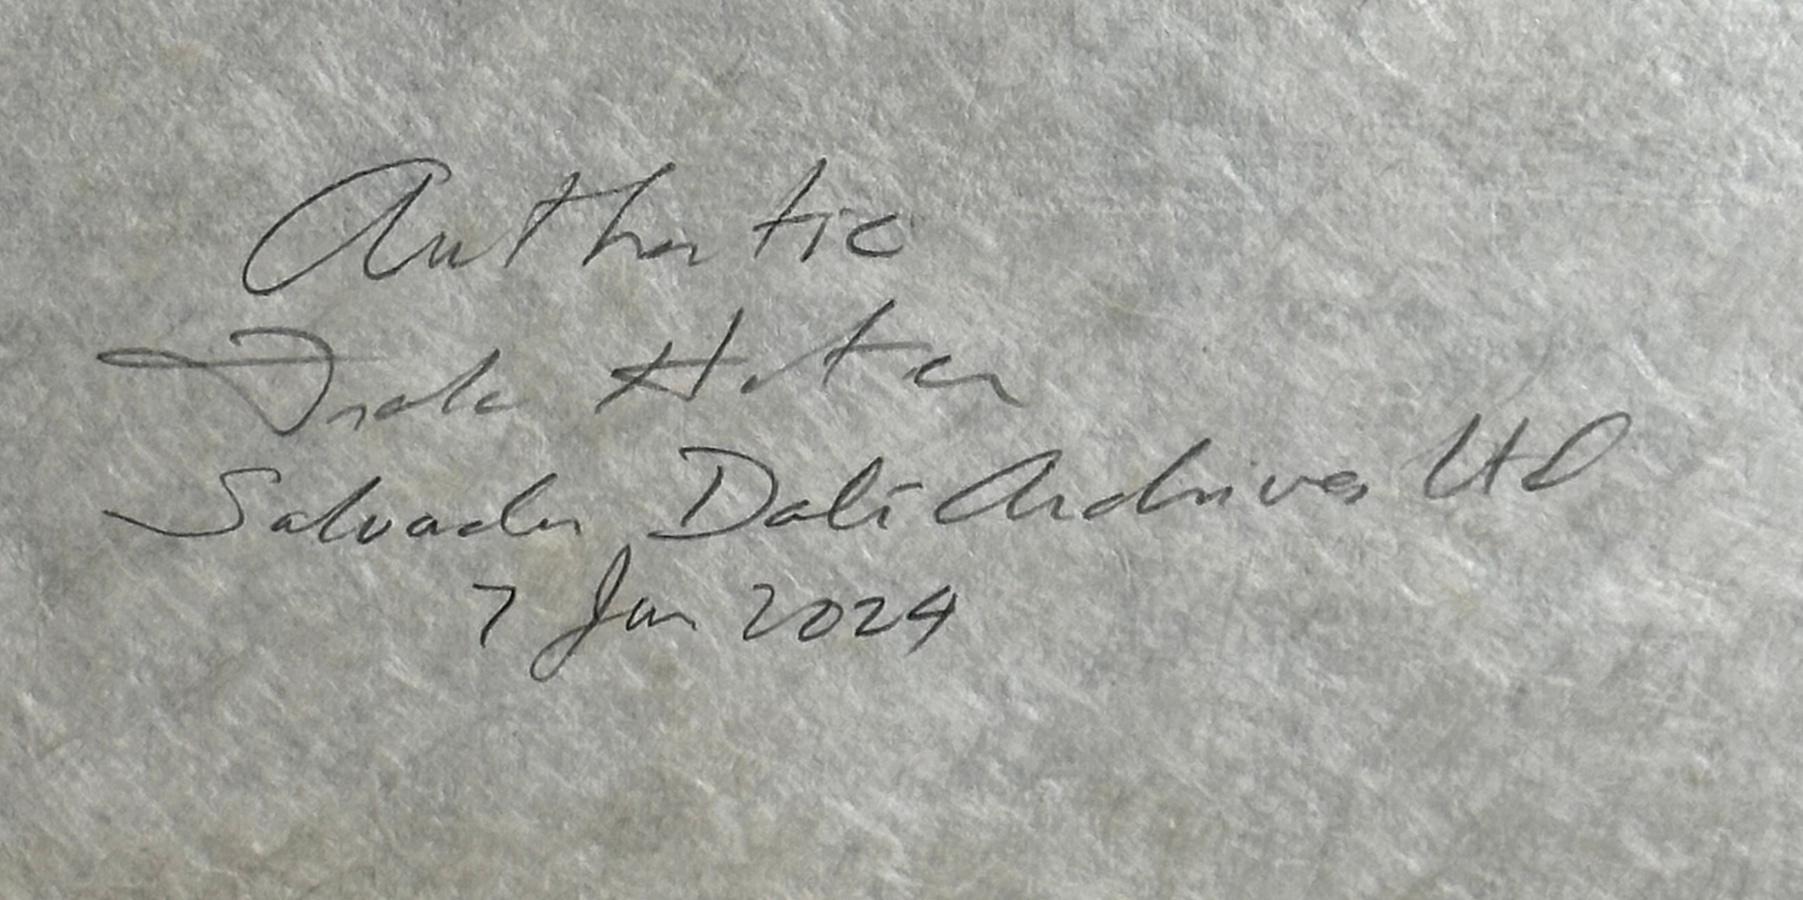 Authentic
Frank Hunter
Salvador Dali Archives Ltd
7 Jan 2024